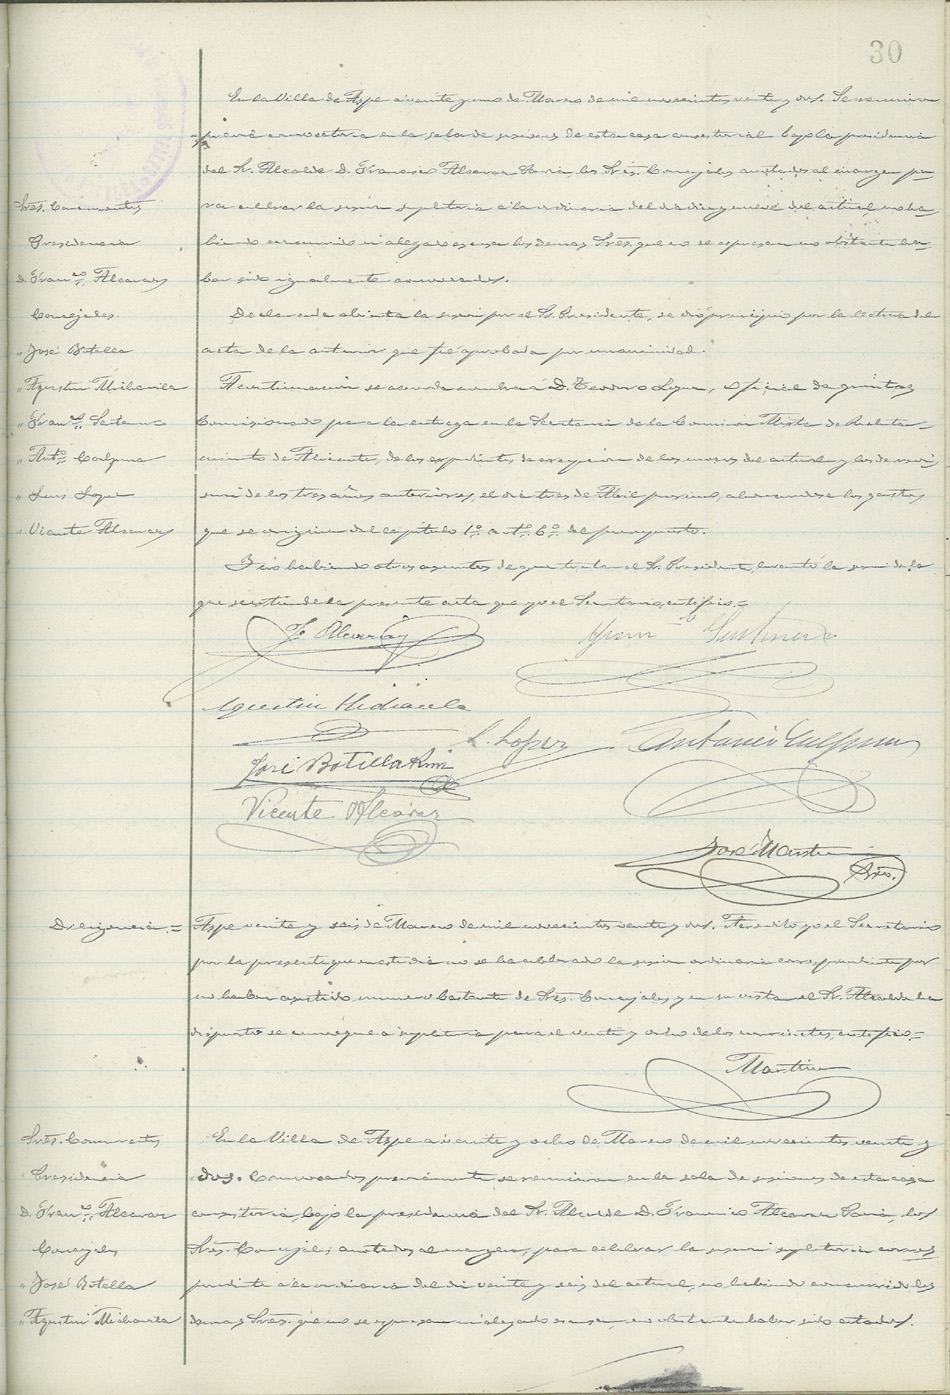 30
En la Villa de Aspe a veinte y uno de Marzo de mil novecientos veinte y dos. Se reunieron
previa convocatoria en la sala de sesiones de esta casa consistorial bajo la presidencia
del Sr. Alcalde D. Francisco Alcaraz Soria, los Sres. Concejales anotados al margen pa-
Sres. Concurrentes
ra celebrar la sesion supletoria a la ordinaria del dia diez y nueve del actual, no ha-
Presidencia
biendo concurrido ni alegado escusa los demas Sres. que no se espresan no obstante ha-
D. Franco. Alcaraz
ber sido igualmente convocados.
Concejales.
Declarada abierta la sesion por el Sr. Presidente, se dió principio por la lectura del
" José Botella
acta de la anterior que fué aprobada por unanimidad.
" Agustin Midiavila
A continuacion se acuerda nombrar a D. López, Oficial de quintas
" Franco.
Comisionado para la entrega en la Secretaria de la Comision Mixta de Recluta-
" Anto.
miento de Alicante, de los expedientes de escepcion de los mozos del actual y los de revi-
" Luis Lopez
sion de los tres años anteriores, el dia tres de Abril proximo, abonandose los gastos
" Vicente Alcaraz
que se originen del capítulo 1º. art. 6º. del presupuesto.
Y no habiendo otros asuntos de que tratar el Sr. Presidente, levantó la sesion de la
que se estiende la presente acta que yo el Secretario, certifico.=
F. Alcaraz
Agustin Midiavila
L. Lopez
Antonio
José Botella
Vicente Alcaraz
José Martinez
Srio.
Diligencia.=
Aspe veinte y seis de Marzo de mil novecientos veinte y dos. Acredito yo el Secretario
por la presente que en este dia no se ha celebrado la sesion ordinaria correspondiente por
no haber asistido numero bastante de Sres. Concejales y en su vista el Sr. Alcalde ha
dispuesto se convoque a supletoria para el veinte y ocho de los corrientes, certifico.=
Martinez
Sres. Concurrentes
En la Villa de Aspe a veinte y ocho de Marzo de mil novecientos veinte y
Presidencia
dos. Convocados previamente se reunieron en la sala de sesiones de esta casa
D. Franco. Alcaraz
consistorial, bajo la presidencia del Sr. Alcalde D. Francisco Alcaraz Soria, los
Concejales
Sres. Concejales anotados al margen, para celebrar la sesion supletoria corres
" José Botella
pondiente a la ordinaria del dia veinte y seis del actual, no habiendo concurrido los
" Agustin Midiavila
demas Sres. que no se espresan ni alegado escusa, no obstante haber sido citados.